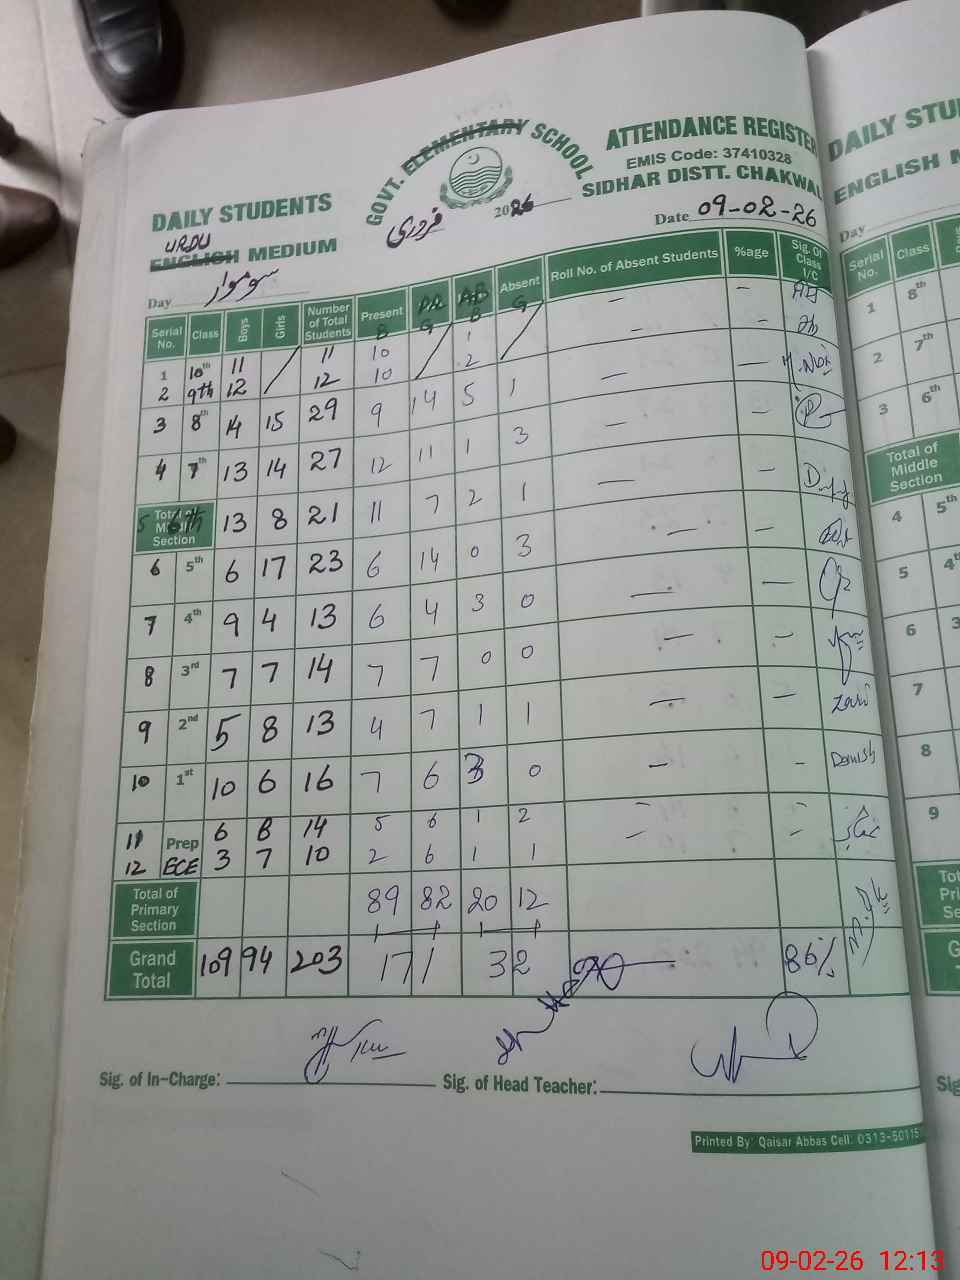 GOVT. ELEMENTARY SCHOOL
ATTENDANCE REGISTER
EMIS Code: 37410328
SIDHAR DISTT. CHAKWAL
DAILY STUDENTS
URDU
ENGLISH MEDIUM
فروری 2026
Date 09-02-26
Day سوموار
Serial No. Class Boys Girls Number of Total Students Present B PR G AB B Absent G Roll No. of Absent Students %age Sig. Of Class I/C
1 10th 11 / 11 10 / 1 / –  –
2 9th 12 / 12 10 / 2 / –
3 8th 14 15 29 9 14 5 1 – –
4 7th 13 14 27 12 11 1 3 – –
5 6th Total of Middle Section 13 8 21 11 7 2 1 – –
6 5th 6 17 23 6 14 0 3 – –
7 4th 9 4 13 6 4 3 0 – –
8 3rd 7 7 14 7 7 0 0 – –
9 2nd 5 8 13 4 7 1 1 – – Zari
10 1st 10 6 16 7 6 3 0 – – Danish
11 Prep 6 8 14 5 6 1 2 – –
12 ECE 3 7 10 2 6 1 1 – –
Total of Primary Section 89 82 20 12
Grand Total 109 94 203 171 32 86%
Sig. of In-Charge:
Sig. of Head Teacher:
Printed By: Qaisar Abbas Cell: 0313-50115
DAILY STU
ENGLISH M
Day
Serial No. Class
1 8th
2 7th
3 6th
Total of Middle Section
4 5th
5 4th
6 3
7
8
9
Sig
09-02-26 12:13